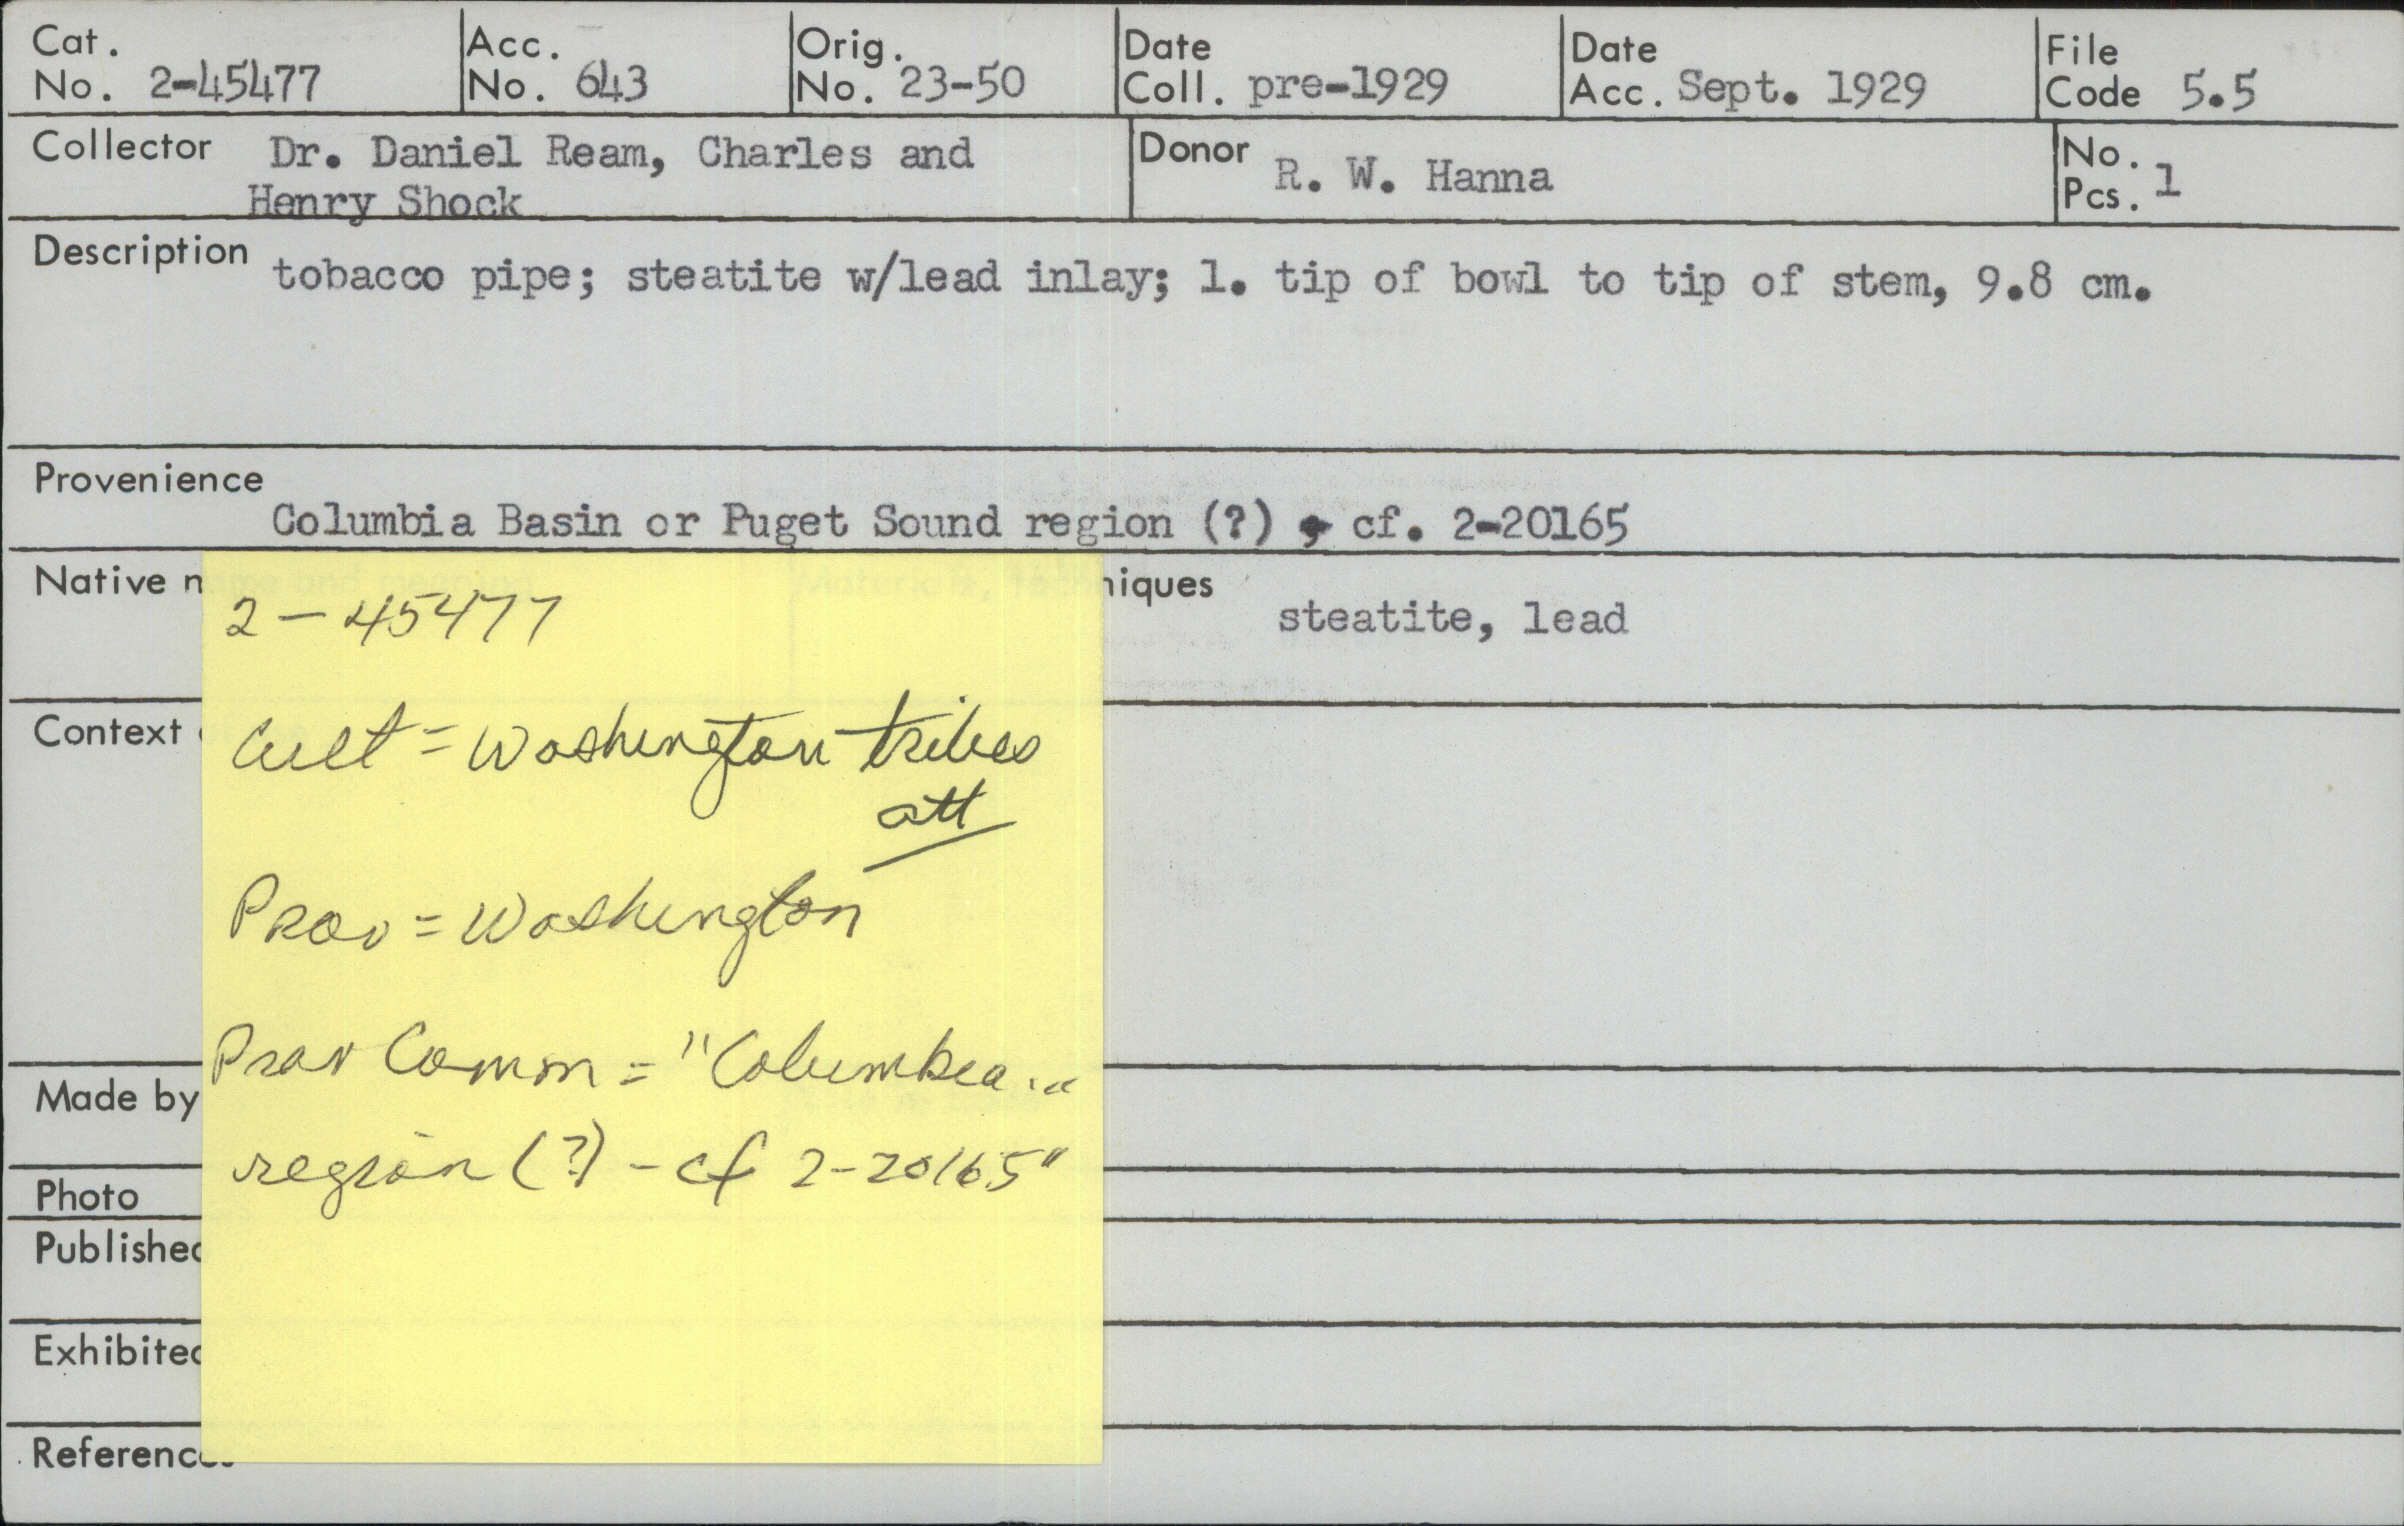 Cat. No. 2-45477
Acc. No. 643
Orig. No. 23-50
Date Coll. pre-1929
Date Acc. Sept. 1929
File Code 5.5
Collector Dr. Daniel Ream, Charles and
Henry Shock
Donor R. W. Hanna
No. Pcs. 1
Description tobacco pipe; steatite w/lead inlay; l. tip of bowl to tip of stem, 9.8 cm.
Provenience
Columbia Basin or Puget Sound region (?) , cf. 2-20165
Native name and meaning
Materials, techniques steatite, lead
Context
Made by
Photo
Published
Exhibited
References
2-45477
Cult = Washington tribes
att
Prov = Washington
Prov Comm = "Columbia ...
region (?) - cf 2-20165"